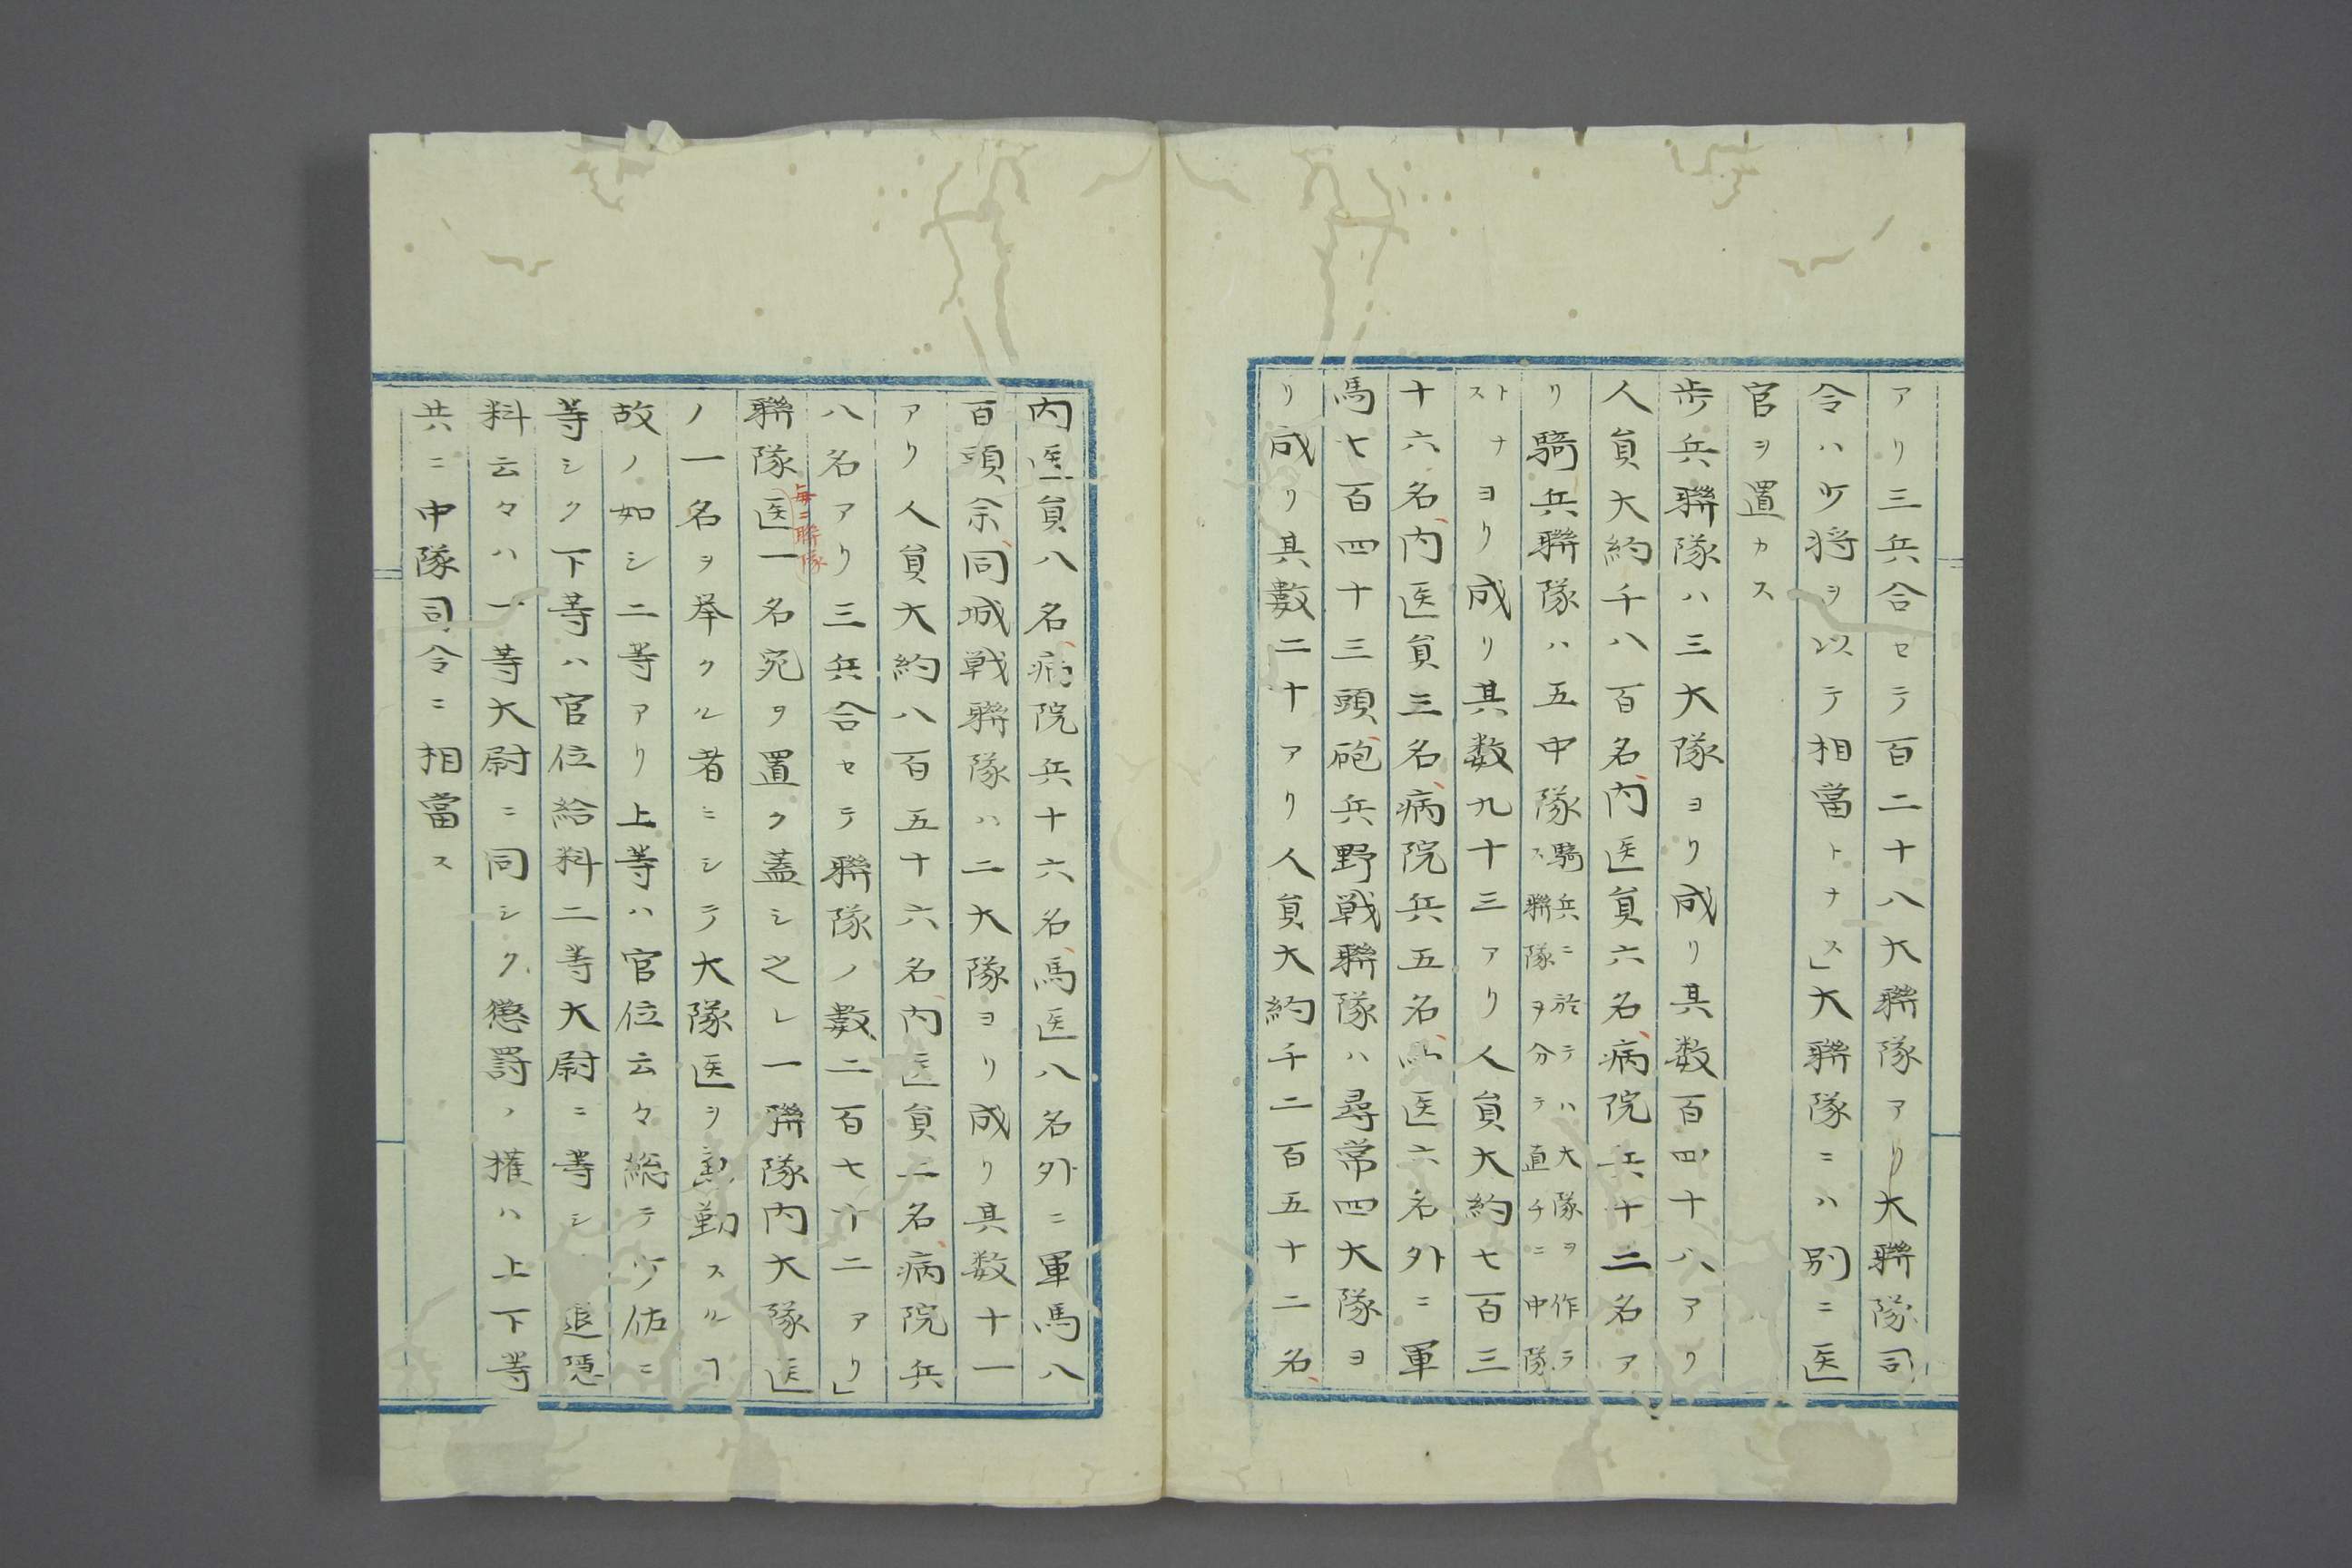 アリ三兵合セテ百二十八大聯隊アリ大聯隊司
令ハ少将ヲ以テ相當トナス」大聯隊ニハ別ニ医
官ヲ置カス
歩兵聯隊ハ三大隊ヨリ成リ其数百四十八アリ
人員大約千八百名、内医員六名、病院兵十二名ア
リ騎兵聯隊ハ五中隊
騎兵ニ於テハ大隊ヲ作ラ
ス聯隊ヲ分テ直チニ中隊
トナ
ス
ヨリ成リ其数九十三アリ人員大約七百三
十六名、内医員三名、病院兵五名、馬医六名外ニ軍
馬七百四十三頭、砲兵野戦聯隊ハ尋常四大隊ヨ
リ成リ其數二十アリ人員大約千二百五十二名、
内医員八名、病院兵十六名、馬医八名外ニ軍馬八
百頭余、同城戦聯隊ハ二大隊ヨリ成リ其数十一
アリ人員大約八百五十六名、内医員二名、病院兵
八名アリ三兵合セテ聯隊ノ數二百七十二アリ」
毎ニ聯隊
聯隊医一名宛ヲ置ク蓋シ之レ一聯隊内大隊医
ノ一名ヲ挙クル者ニシテ大隊医ヲ兼勤スルヿ
故ノ如シ二等アリ上等ハ官位云々総テ少佐ニ
等シク下等ハ官位給料二等大尉ニ等シ退隠
料云々ハ一等大尉ニ同シク、懲罰ノ権ハ上下等
共ニ中隊司令ニ相當ス